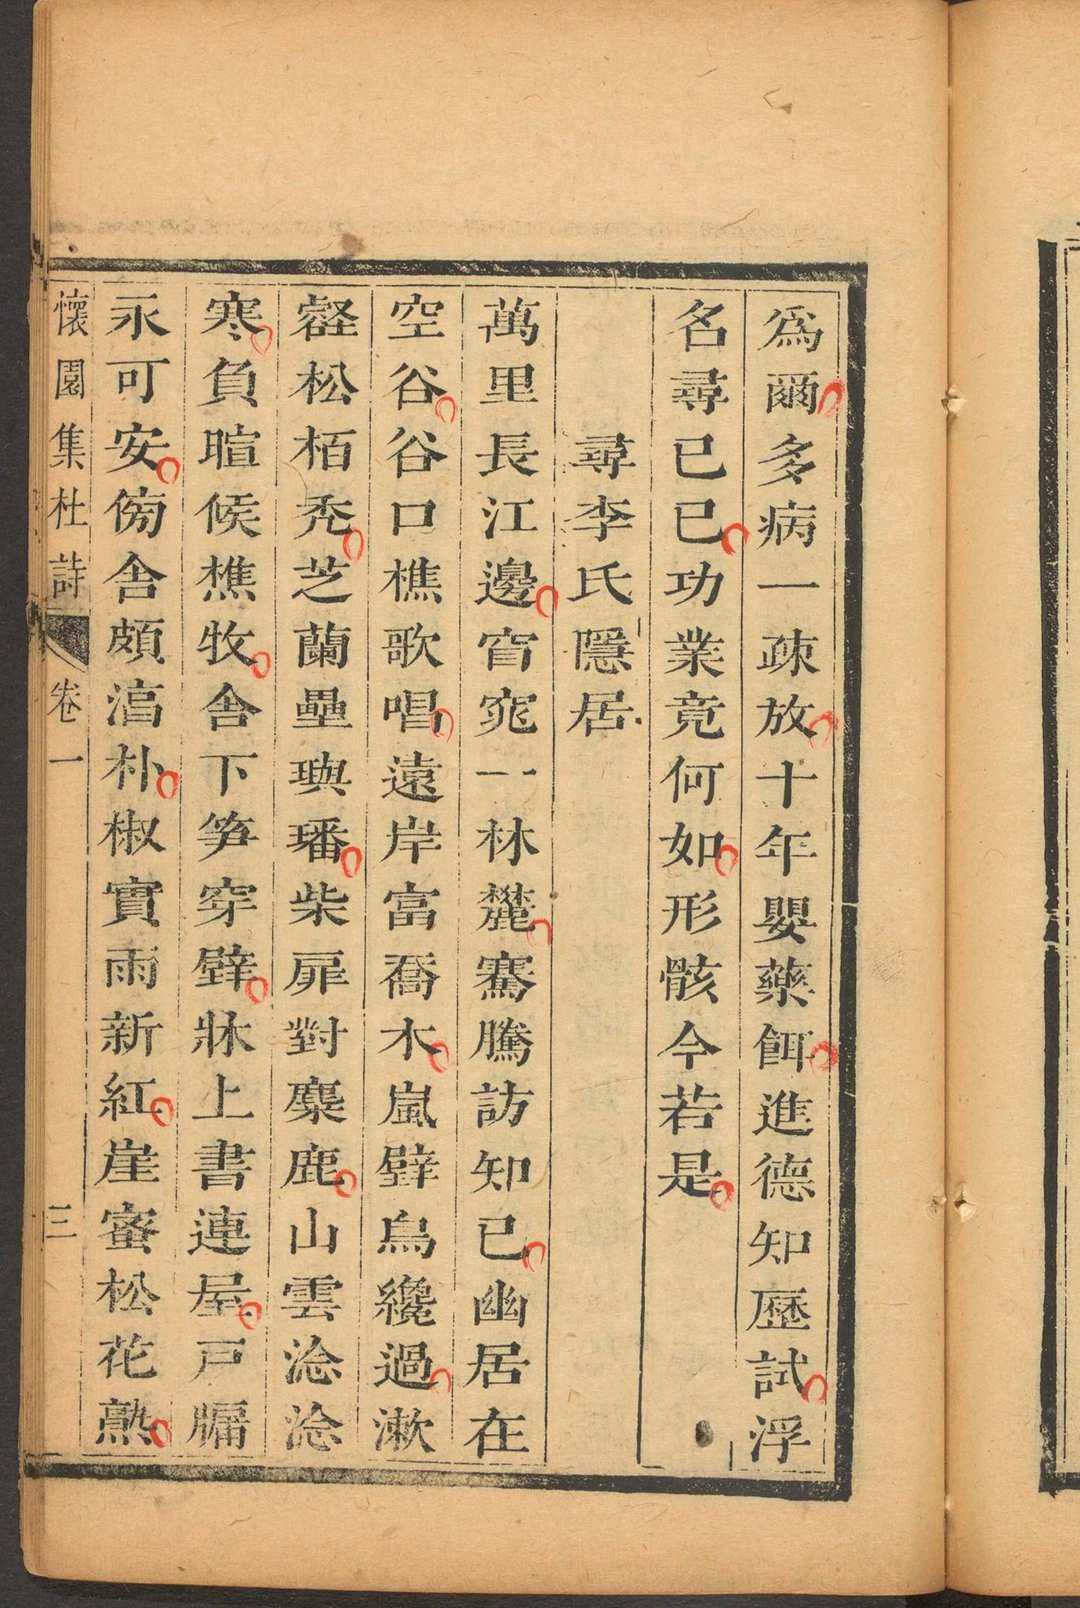 爲爾多病一疎放十年嬰藥餌進德知歷試浮
名尋已已功業竟何如形骸今若是
尋李氏隱居
萬里長江邊窅窕一林麓騫騰訪知已幽居在
空谷谷口樵歌唱遠岸富喬木嵐壁鳥纔過潄
壑松栢禿芝蘭壘璵璠柴扉對麋鹿山雲淰淰
寒負暄候樵牧舍下笋穿壁牀上書連屋戸牖
永可安傍舍頗淳朴椒實雨新紅崖蜜松花熟
懷園集杜詩 卷一 三